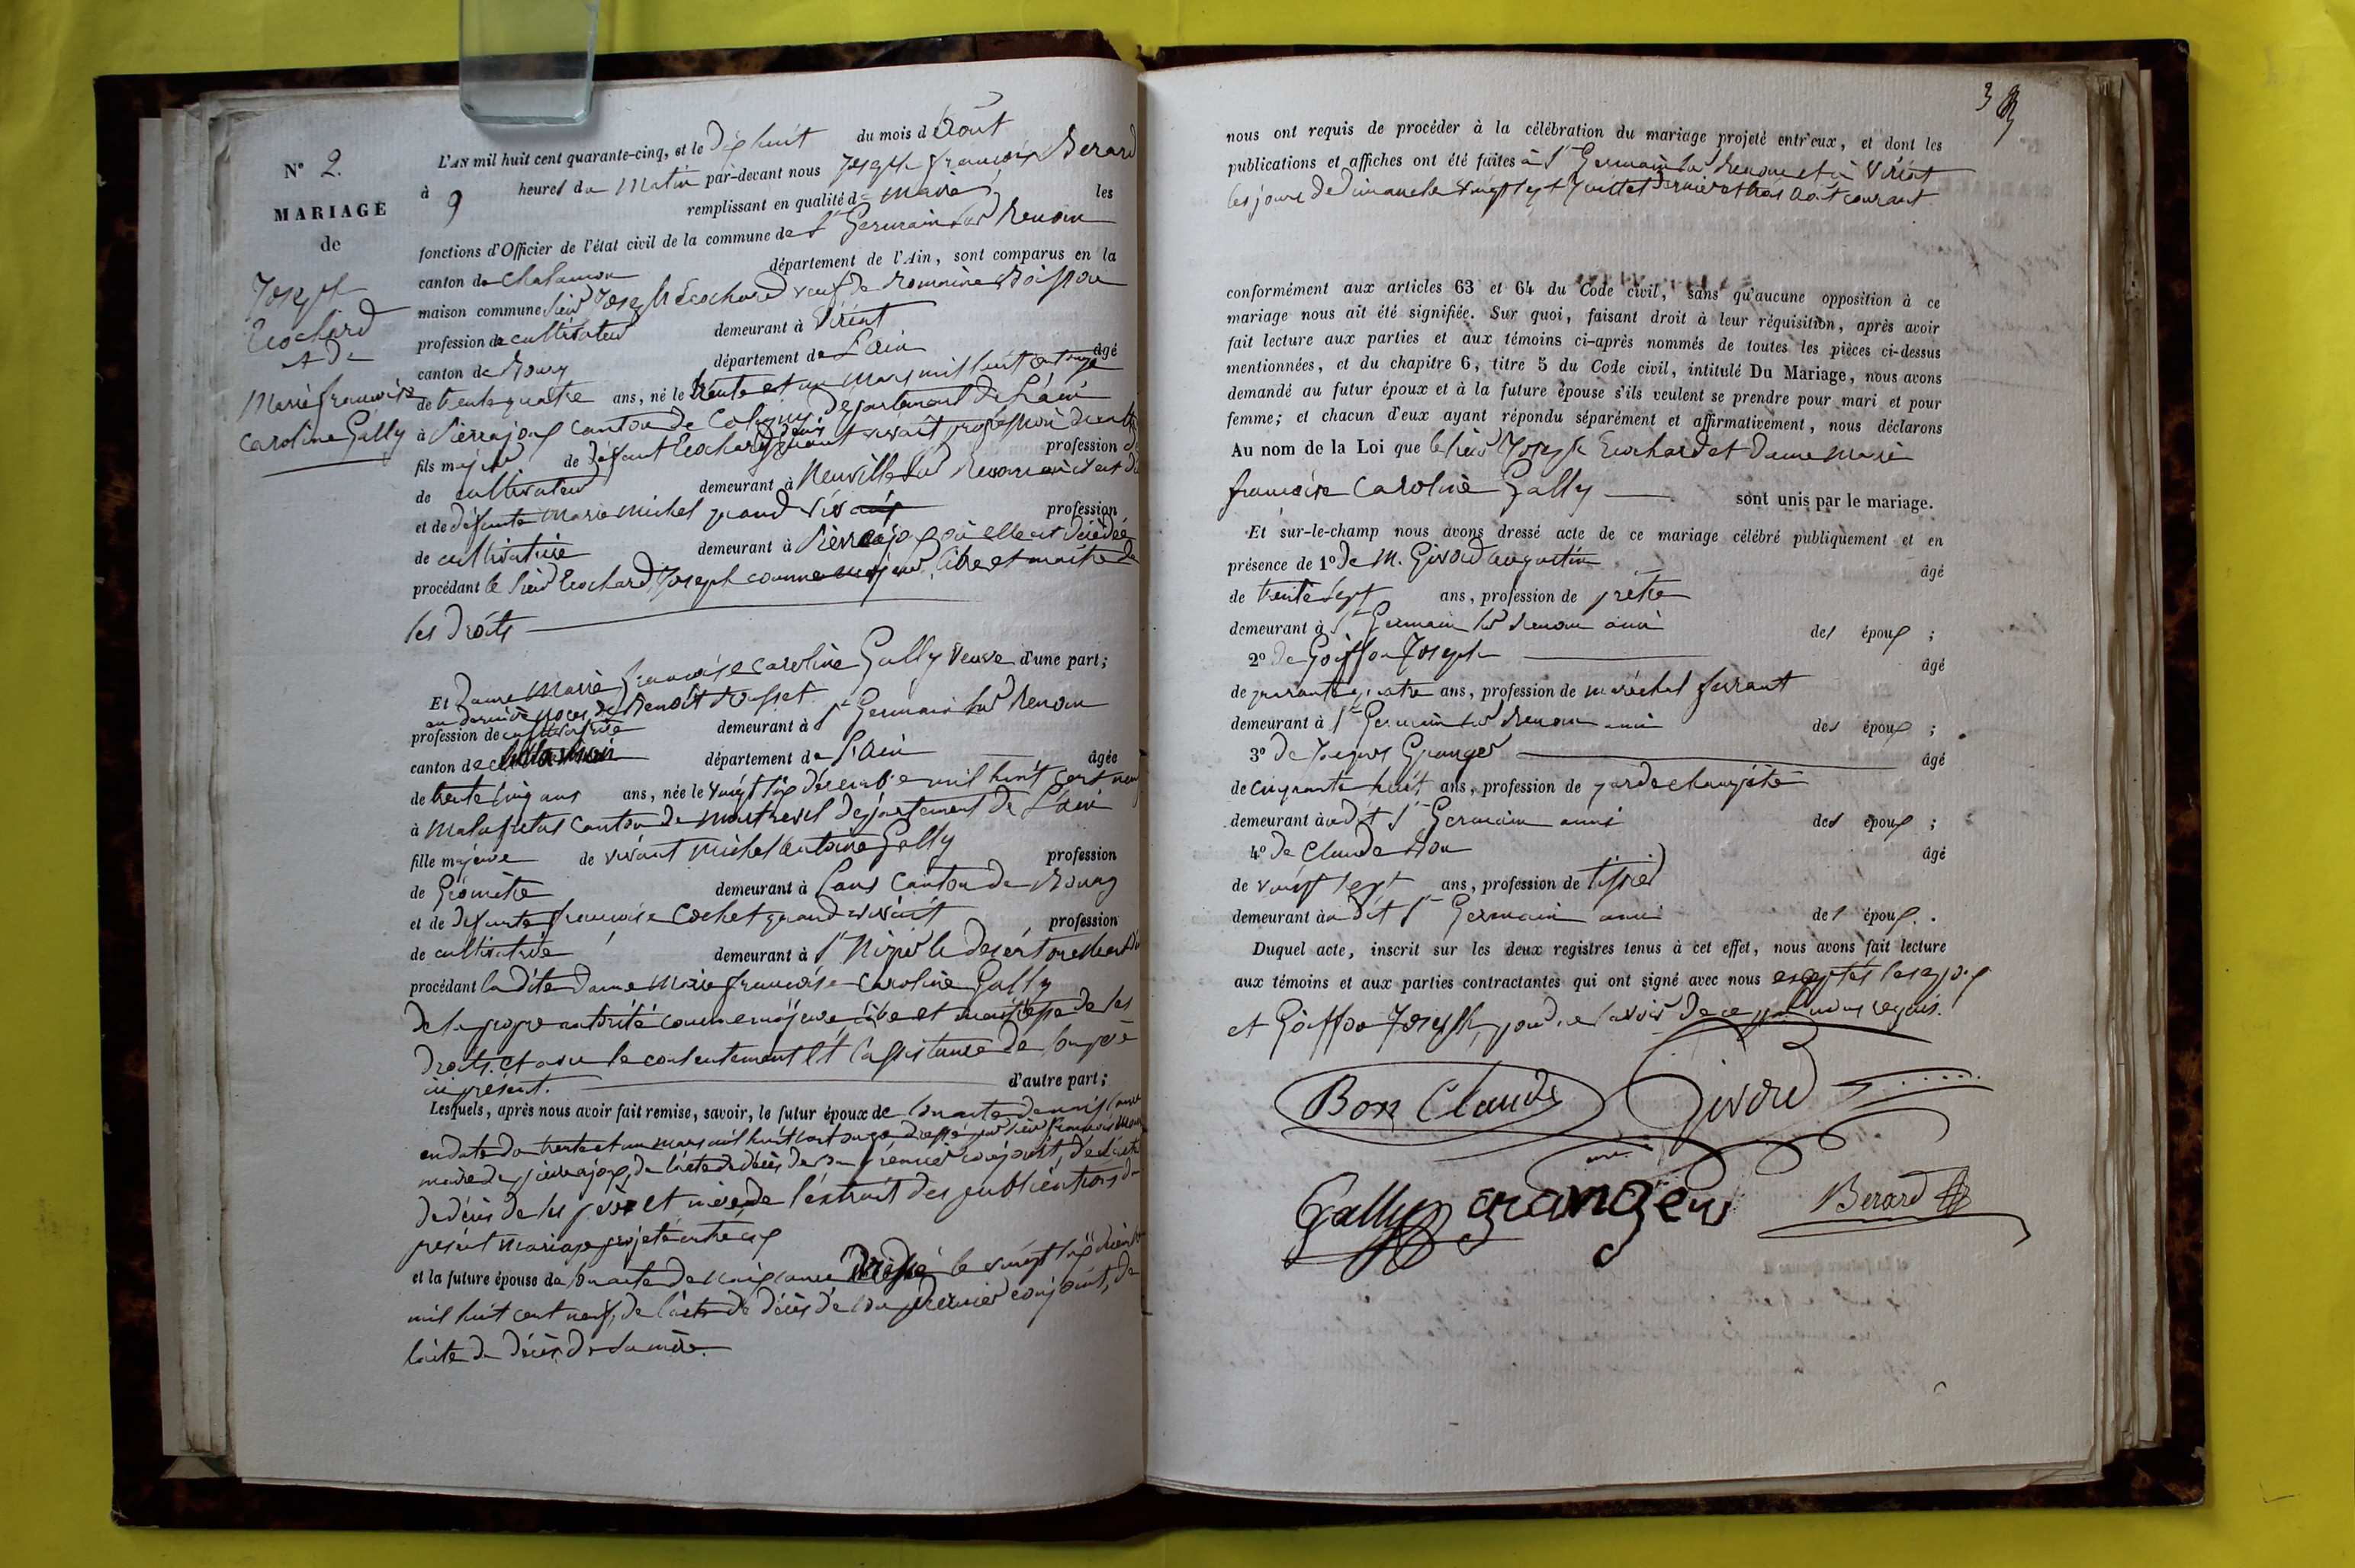 N° 2.
MARIAGE
de
Joseph
Eochard
et de
Marie françoise
Caroline Gally
L'AN mil huit cent quarante-cinq, et le dix huit du mois d'août
à 9 heures du Matin par-devant nous Joseph françois Berard
remplissant en qualité de maire les
fonctions d'Officier de l'état civil de la commune de St Germain sur Renom
canton de Chalamon département de l'Ain, sont comparus en la
maison commune sieur Joseph Eochard veuf de Romaine
profession de cultivateur demeurant à Viriat
canton de Bourg département de L'ain âgé
de trente quatre ans, né le trente et un mars mil huit cent onze
à Pierrajoux canton de Coligny département de L'ain
fils majeur de défunt Eochard quand vivait profession
de cultivateur demeurant à Neuville sur Renom
et de défunte Marie Michel quand vivait profession
de cultivatrice demeurant à Pierrajoux où elle est décédée
procédant le sieur Eochard Joseph comme majeur, libre et maître de
ses droits
d'une part;
Et Dame Marie françoise Caroline Gally veuve
en dernière noces de Benoit
profession de cultivatrice demeurant à St Germain sur Renom
canton de chalamon département de L'ain âgée
de trente cinq ans ans, née le vingt six décembre mil huit cent neuf
à Malafretas canton de montrevel département de L'ain
fille majeure de vivant Michel Antoine Gally profession
de Géomètre demeurant à Lans Canton de Bourg
et de défunte françoise Cochet quand vivait profession
de cultivatrice demeurant à St Nizier le desert
procédant la dite Dame Marie françoise Caroline Gally
de sa propre autorité comme majeure libre et maitresse de ses
droits. et avec le consentement et l'assistance de son père
ici présent. d'autre part;
Lesquels, après nous avoir fait remise, savoir, le futur époux de son acte de naissance
en date du trente et un mars mil huit cent onze dressé par sieur françois
maire de pierrajoux, de l'acte de décès de son premier conjoint, de l'acte
de décès de ses père et mère, de l'extrait des publications du
présent mariage projeté entre eux
et la future épouse de son acte de naissance dressé le vingt six décembre
mil huit cent neuf, de l'acte de décès de son dernier conjoint, de
l'acte de décès de sa mère.
3
nous ont requis de procéder à la célébration du mariage projeté entr'eux, et dont les
publications et affiches ont été faites à St Germain sur Renom et à Viriat
les jours de Dimanche vingt sept Juillet dernier et trois août courant
conformément aux articles 63 et 64 du Code civil, sans qu'aucune opposition à ce
mariage nous ait été signifiée. Sur quoi, faisant droit à leur réquisition, après avoir
fait lecture aux parties et aux témoins ci-après nommés de toutes les pièces ci-dessus
mentionnées, et du chapitre 6, titre 5 du Code civil, intitulé Du Mariage, nous avons
demandé au futur époux et à la future épouse s'ils veulent se prendre pour mari et pour
femme; et chacun d'eux ayant répondu séparément et affirmativement, nous déclarons
Au nom de la Loi que le sieur Joseph Eochard et Dame Marie
françoise Caroline Gally sont unis par le mariage.
Et sur-le-champ nous avons dressé acte de ce mariage célébré publiquement et en
présence de 1° de M. Givord augustin âgé
de trente sept ans, profession de prêtre
demeurant à St Germain sur Renom ami des époux ;
2° de Goiffon Joseph âgé
de quarante quatre ans, profession de maréchal ferrant
demeurant à St Germain sur Renom ami des époux ;
3° de Granger âgé
de cinquante huit ans, profession de garde champêtre
demeurant au dit St Germain ami des époux ;
4° de Claude Bon âgé
de vingt sept ans, profession de tissier
demeurant au dit St Germain ami des époux .
Duquel acte, inscrit sur les deux registres tenus à cet effet, nous avons fait lecture
aux témoins et aux parties contractantes qui ont signé avec nous exceptés les époux
et Goiffon Joseph, pour ne savoir de ce par nous requis.
Bon Claude Givord
Gally granger Berard